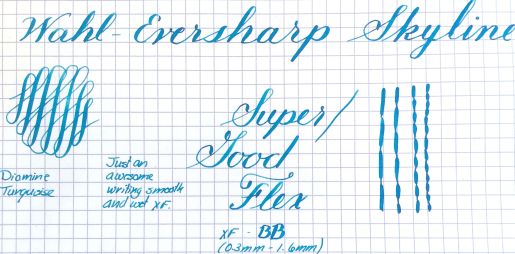 Wahl-Eversharp Skyline
Super/
Good
Flex
Diamine
Turquoise
Just an
awesome
writing smooth
and wet XF.
XF - BB
(0.3mm - 1.6mm)